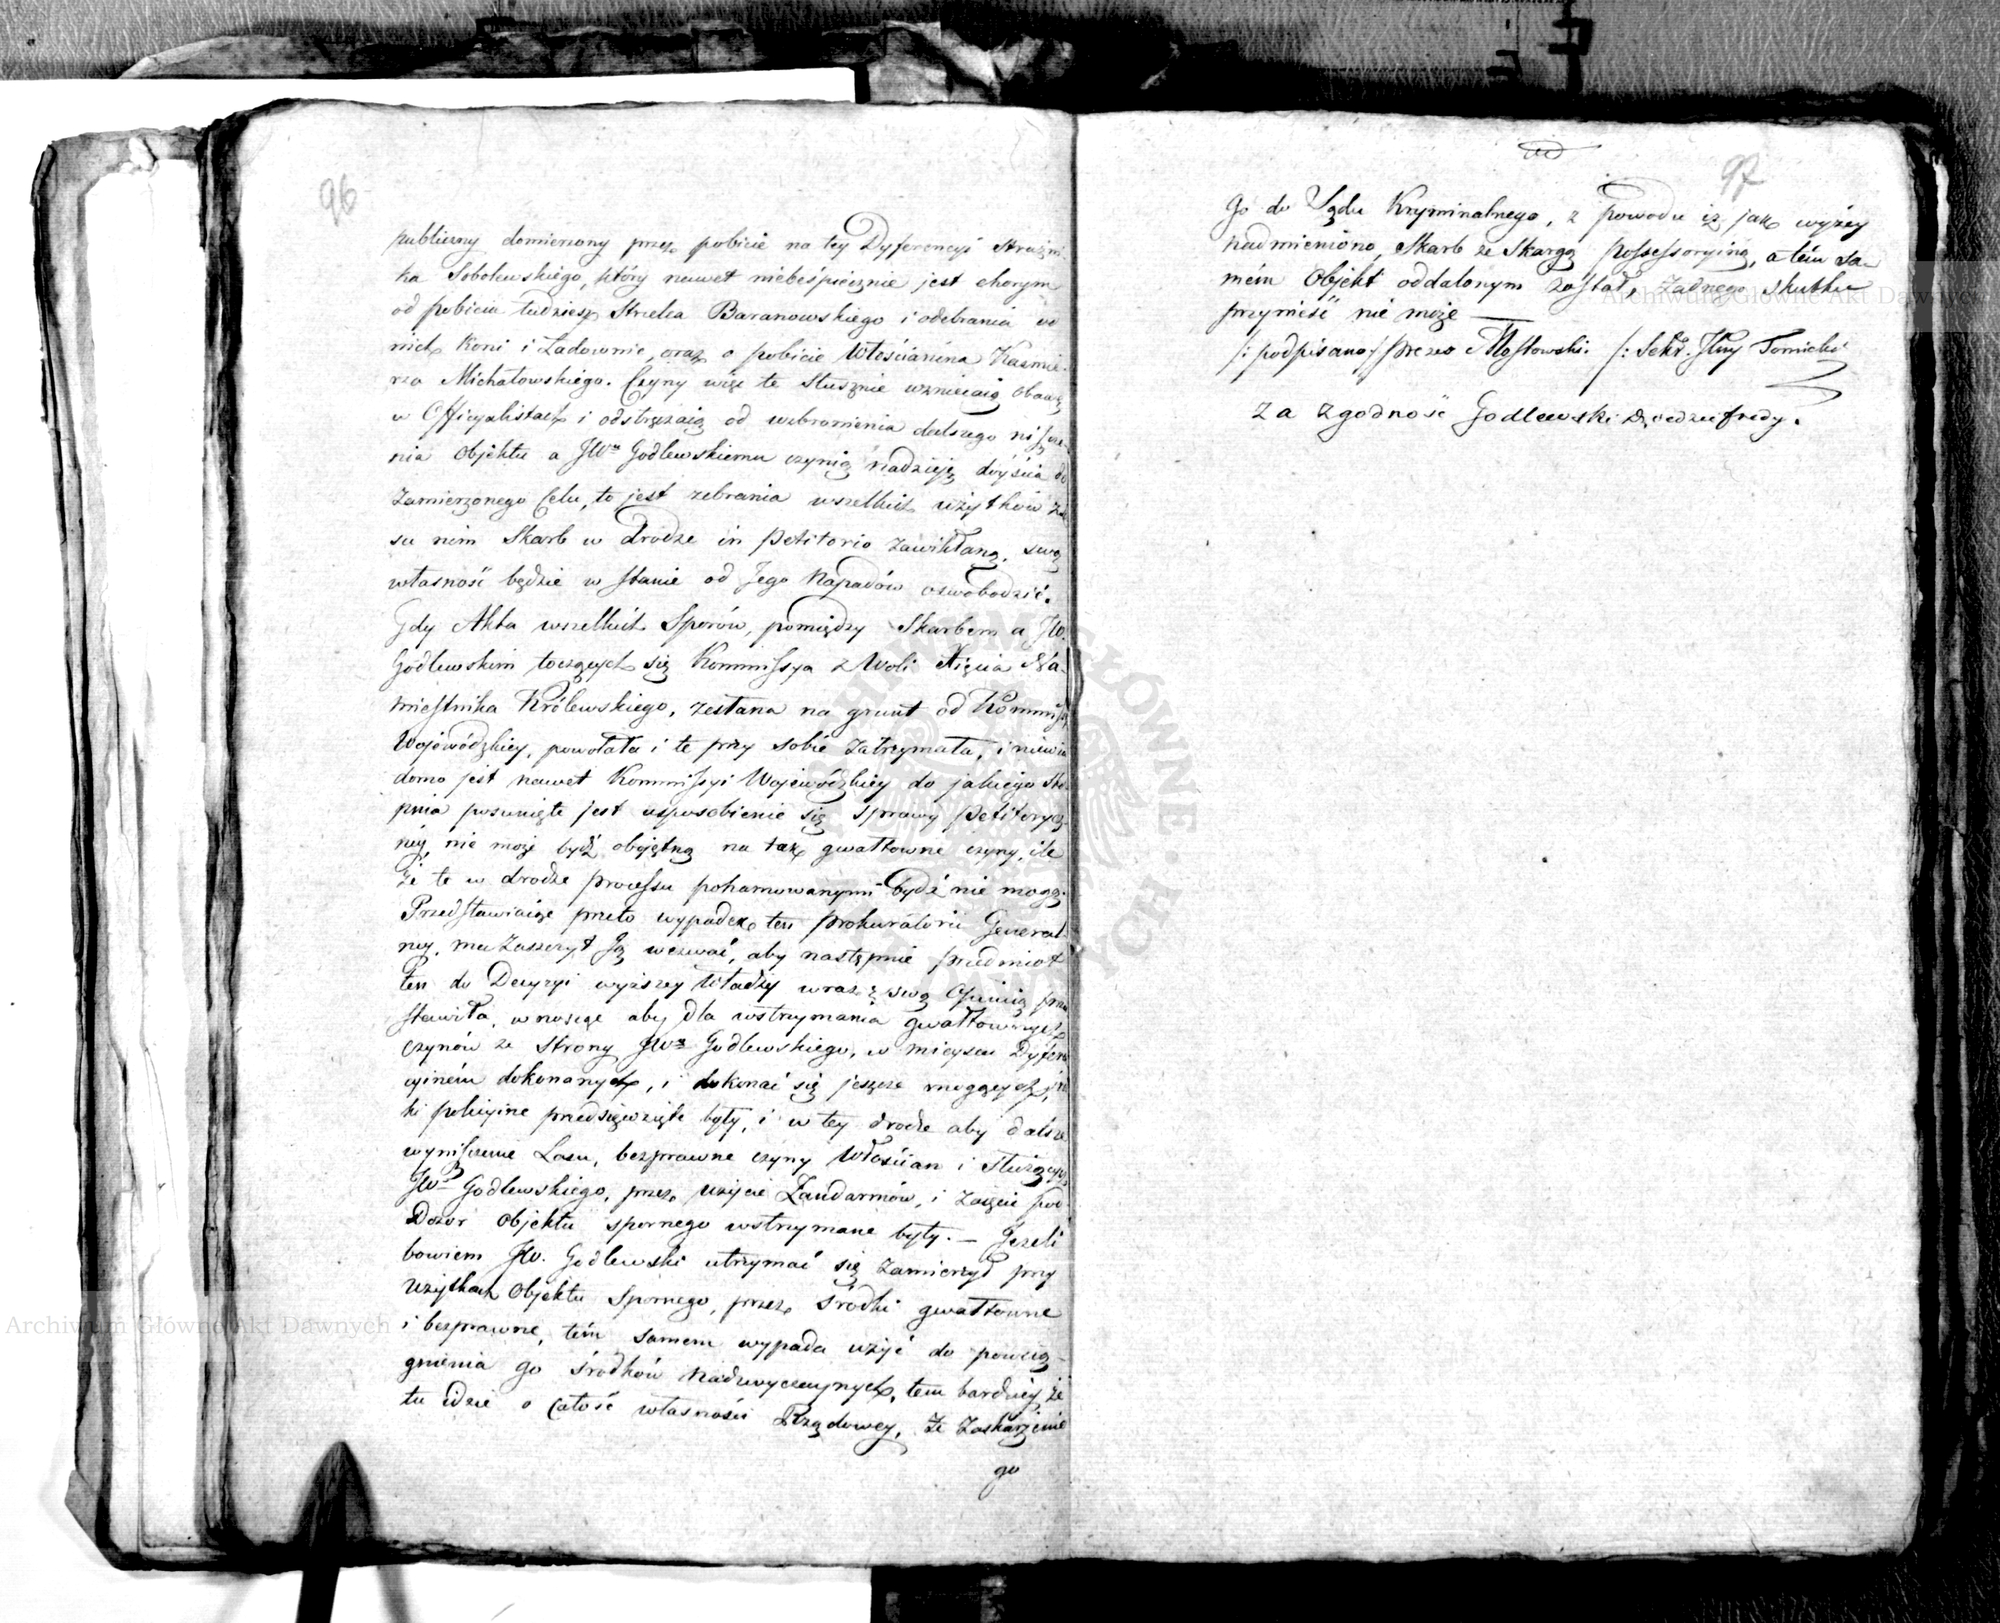 96
publiczny domierzony przez pobicie na tey Dyferencyi Strażni-
ka Sobolewskiego, który nawet niebeśpiecznie jest chorym
od pobicia tudziesz Strzelca Baranowskiego i odebrania od
nich Koni i Ładownic, oraz o pobicie Włościanina Kazmie-
rza Michałowskiego. Czyny więc te Słusznie wzniecaią obawę
w Officyalistach i odstręczaią od wzbronienia dalszego niszcze-
nia Objektu a JWu Godlewskiemu czynią nadzieję dojścia do
Zamierzonego Celu, to jest zebrania wszelkich użytków
su nim Skarb w drodze in petitorio zawikłaną, swą
własność będzie w stanie od Jego Napadów oswobodzić.
Gdy Akta wszelkich Sporów, pomiędzy Skarbem a JW.
Godlewskim toczących się Kommissya z Woli Xięcia Na-
miestnika Królewskiego, zesłana na grunt od Kommissyi
Wojewódzkiey, powołała i te przy sobie zatrzymała, i niewia
domo jest nawet Kommissyi Wojewódzkiey do jakiego sto-
pnia posunięte jest usposobienie się Sprawy petitorycz-
ney, nie może bydź obojętną na tak gwałtowne czyny, ile
że te w drodze processu pohamowanymi bydź nie mogą.
Przedstawiaiąc przeto wypadek ten Prokuratorii General-
ney, ma zaszczyt Ją wezwać, aby następnie przedmiot
ten do Decyzyi wyższey Władzy wraz z swą Opinią prze
stawiła, wnosząc aby dla wstrzymania gwałtownych
czynów ze Strony JWo Godlewskiego, w mieyscu Dyferen
cyiném dokonanych, i dokonać się jeszcze mogących, śro
ki policyine przedsięwzięte były, i w tey drodze aby dalsze
wyniszczenie Lasu, bezprawne czyny Włościan i Służących
JWo Godlewskiego, przez użycie Żandarmów, i zajęcie pod
Dozor Objektu spornego wstrzymane były. — Jeżeli
bowiem JW. Godlewski utrzymać się zamierzył przy
użytkach Objektu Spornego, przez środki gwałtowne
i bezprawne, tém samem wypada użyć do powścią-
gnienia go środków nadzwyczajnych, tem bardziey że
tu idzie o całość własności Rządowey, że Zaskarżenie
go
97
Go do Sądu Kryminalnego, z powodu iż jak wyżey
nadmieniono, Skarb ze Skargą possessoryiną, a tém sa-
mém Objekt oddalonym został, żadnego skutku
przynieść nie może —
/: podpisano/ prezes Mostowski. /: Sekr. Jlny Tomicki
Za zgodność Godlewski Dziedzic fredy.
Archiwum Główne Akt Dawnych
Archiwum Główne Akt Dawnych